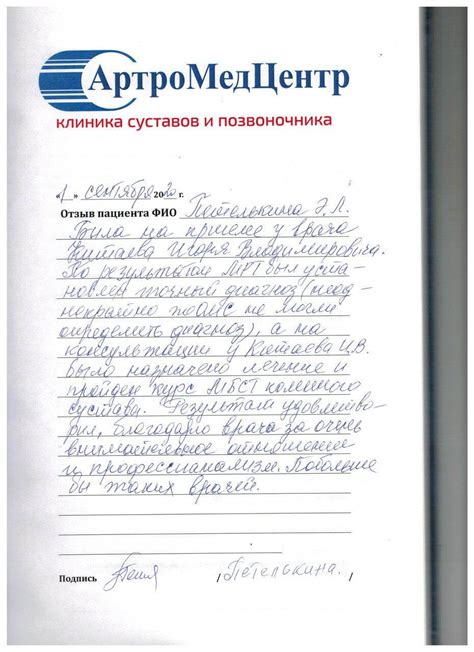 АртроМедЦентр
клиника суставов и позвоночника
«1» сентября 2020 г.
Отзыв пациента ФИО Петелькина Э.Л.
Была на приеме у врача
Китаева Игоря Владимировича.
По результатам МРТ был уста-
новлен точный диагноз (неод-
нократно не могли
определить диагноз), а на
консультации у Китаева И.В.
было назначено лечение и
пройден курс МБСТ коленного
сустава. Результат удовлетво-
рил, благодарю врача за очень
внимательное отношение
и профессионализм. Побольше
бы таких врачей.
Подпись / Петелькина. /